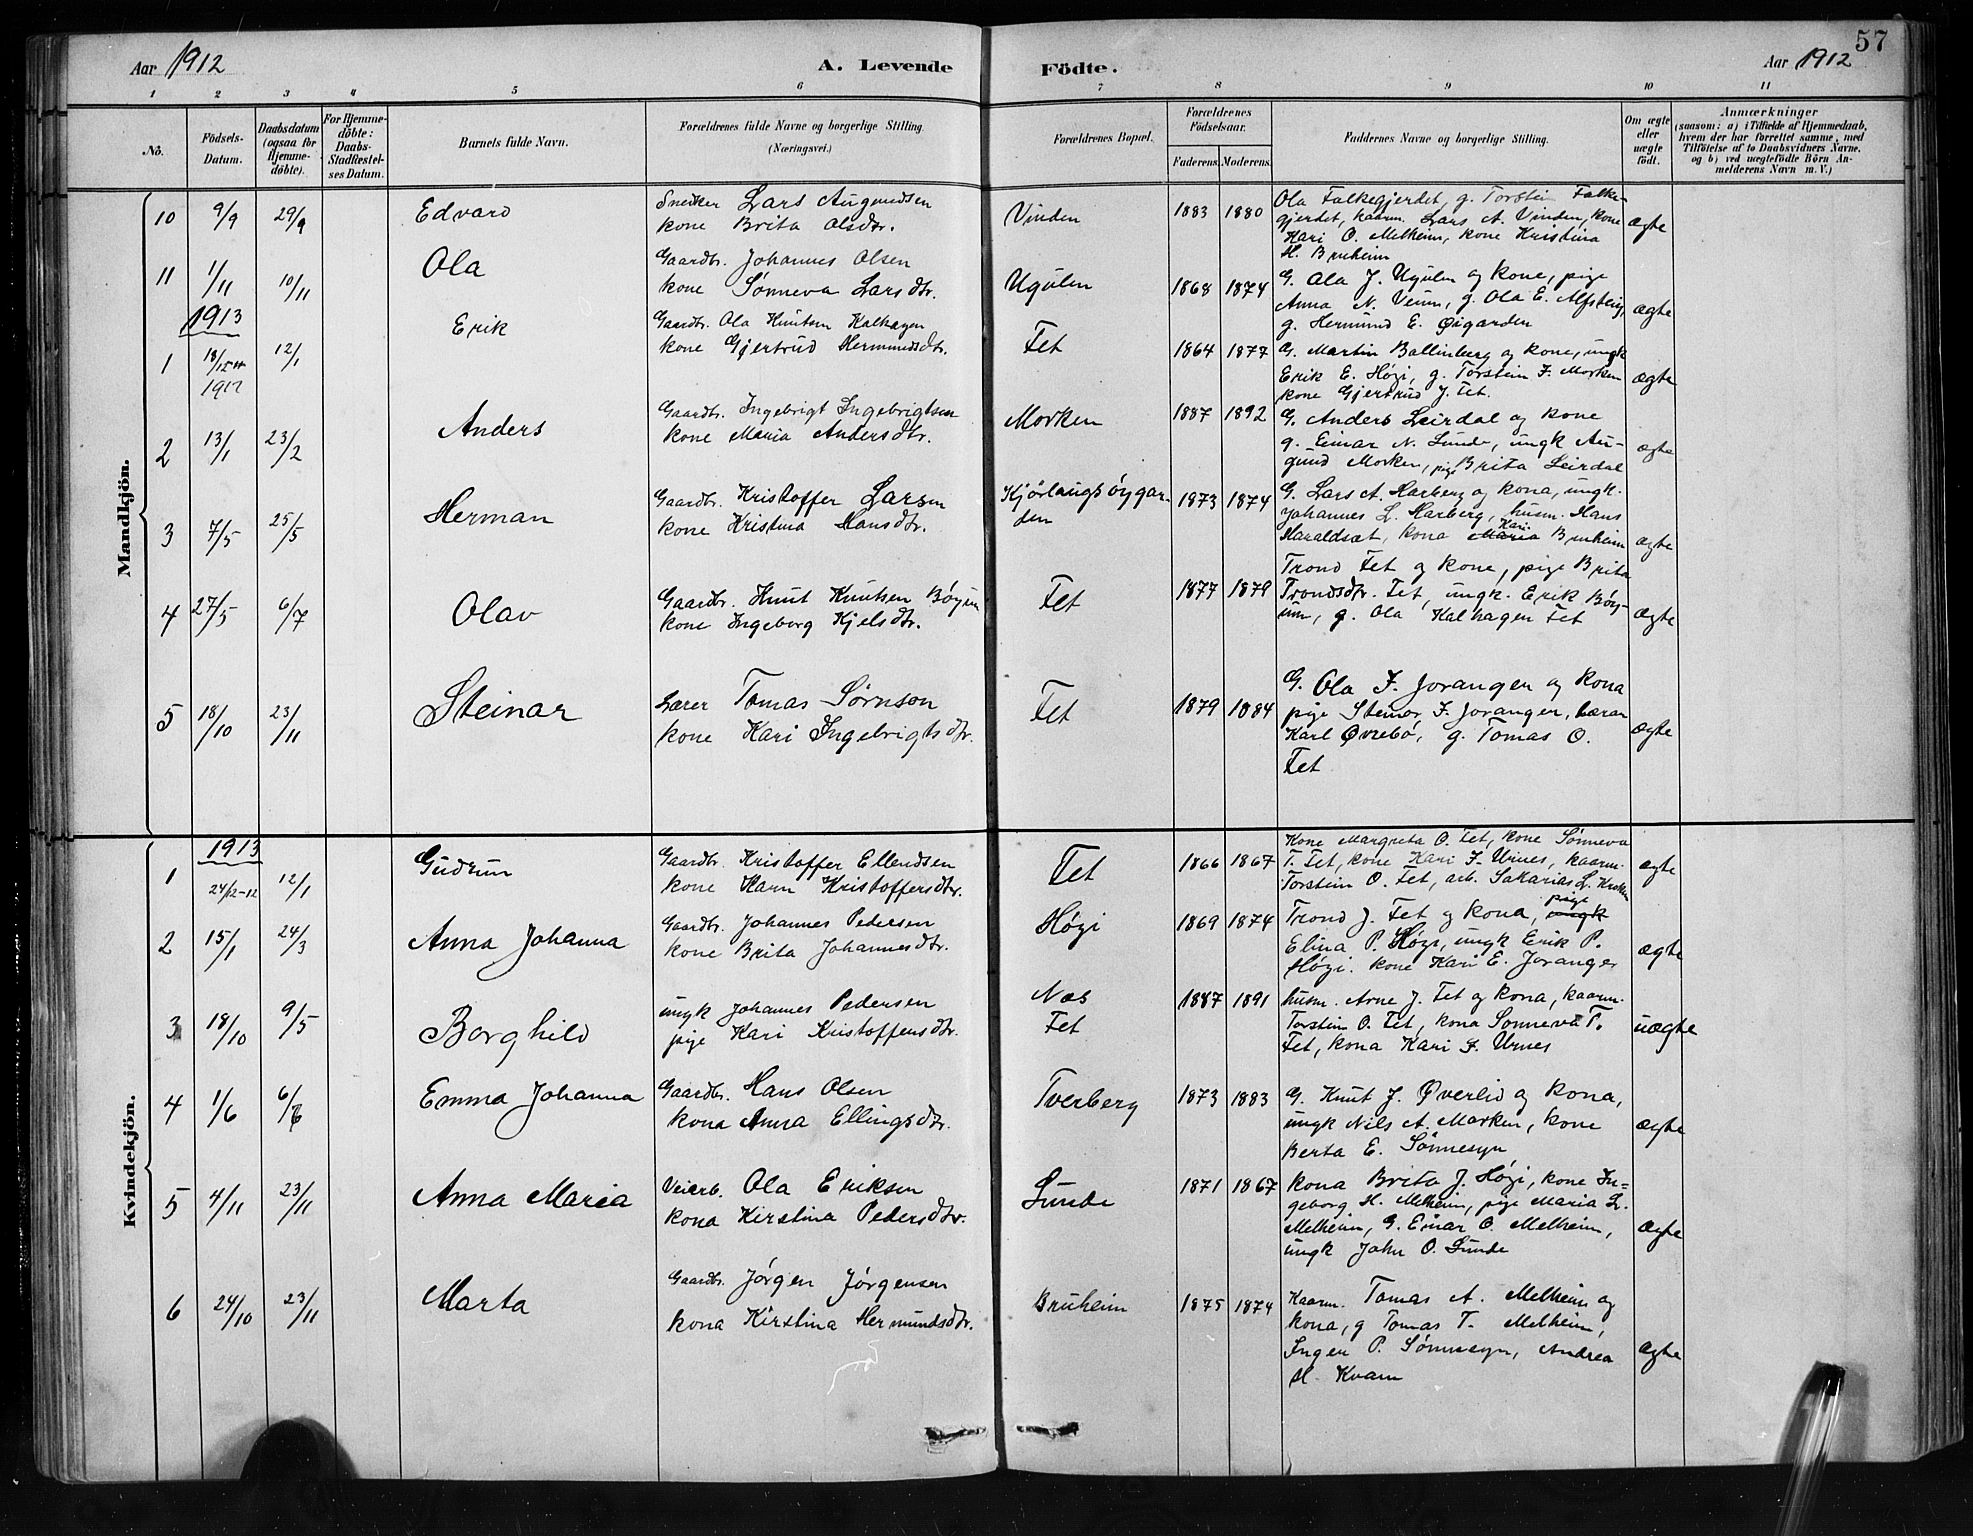 57
Aar 1912
A. Levende
Födte.
Aar 1912
1 2 3 4 5 6 7 8 9 10 11
No.
Födsels-
Datum.
Daabsdatum
(ogsaa for
Hjemme-
döbte).
For Hjemme-
döbte:
Daabs-
Stadfæstel-
ses Datum.
Barnets fulde Navn.
Forældrenes fulde Navne og borgerlige Stilling.
(Næringsvei.)
Forældrenes Bopæl.
Forældrenes
Födselsaar.
Faderens. Moderens.
Faddernes Navne og borgerlige Stilling.
Om ægte
eller
uægte
födt.
Anmærkninger
(saasom: a) i Tilfælde af Hjemmedaab,
hvem der har forrettet samme, med
Tilföielse af to Daabsvidners Navne,
og b) ved uægtefödte Börn An-
melderens Navn m. V.)
Mandkjön.
10 9/9 29/9 Edvard
Snedker Lars Augundsen
kone Brita Olsdtr.
Vinden 1883 1880
Ola Falkegjerdet, g. Torstein Falke-
gjerdet, kaarm. Lars A. Vinden, kone
Kari O. Melheim, kone Kristina
H. Bruheim
ægte
11 1/11 10/11 Ola
Gaardbr. Johannes Olsen
kone Sønneva Larsdtr.
Ugulen 1868 1874
G. Ola J. Ugulen og kone, pige
Anna N. Veum, g. Ola E. Alfsteig
g. Hermund E. Øigarden
ægte
1913
1 18/12 1912 12/1 Erik
Gaardbr. Ola Knutsen Kalhagen
kone Gjertrud Hermundsdtr.
Fet 1864 1877
G. Martin Ballinberg og kone, ungk
Erik E. Høgi, g. Torstein J. Morken
kone Gjertrud J. Fet.
ægte
2 13/1 23/2 Anders
Gaardbr. Ingebrigt Ingebrigtsen
kone Maria Andersdtr.
Morken 1887 1892
G. Anders Leirdal og kone
g. Einar N. Lunde, ungk Au-
gund Morken, pige Brita Leirdal
ægte
3 7/5 25/5 Herman
Gaardbr. Kristoffer Larsen
kone Kristina Hansdtr.
Kjørlaugsøygar-
den
1873 1874
G. Lars A. Harberg og kona, ungk.
Johannes L. Harberg, husm. Hans
Haraldsæt, kona Maria Kari Bruheim
ægte
4 27/5 6/7 Olav
Gaardbr. Knut Knutsen Bøyum
kone Ingeborg Kjelsdtr.
Fet 1877 1879
Trond Fet og kone, pige Brita
Trondsdtr. Fet, ungk. Erik Bøy-
um, g. Ola Kalhagen Fet
ægte
5 18/10 23/11 Steinar
Lærer Tomas Sørnson
kone Kari Ingebrigtsdtr.
Fet 1879 1884
G. Ola J. Joranger og kona
pige Steinor J. Joranger, lærar
Karl Øvrebø, g. Tomas O.
Fet
ægte
Kvindekjön.
1913
1 24/12-12 12/1 Gudrun
Gaardbr. Kristoffer Ellendsen
kone Karn Kristoffersdtr.
Fet 1866 1867
Kone Margreta O. Fet, kone Sønneva
T. Fet, kone Kari J. Urnes, kaarm.
Torstein O. Fet, arb. Sakarias L. Kroken
ægte
2 15/1 24/3 Anna Johanna
Gaardbr. Johannes Pedersen
kone Brita Johannesdtr.
Høgi 1869 1874
Trond J. Fet og kona, ungk pige
Elina P. Høgi, ungk Erik P.
Høgi. kone Kari E. Joranger
ægte
3 18/10 9/5 Borghild
ungk Johannes Pedersen
pige Kari Kristoffersdtr.
Nes
Fet
1887 1891
husm. Arne J. Fet og kona, kaarm.
Torstein O. Fet, kona Sonneva T.
Fet, kona Kari J. Urnes
uægte
4 1/6 6/6 Emma Johanna
Gaardbr. Hans Olsen
kona Anna Ellingsdtr.
Tverberg 1873 1883
G. Knut J. Øverlid og kona,
ungk Nils A. Morken, kone
Berta E. Sønnesyn
ægte
5 4/11 23/11 Anna Maria
Veiarb. Ola Eriksen
kona Kirstina Pedersdtr.
Lunde 1871 1867
kona Brita J. Høgi, kone In-
geborg H. Melheim, pige Maria L.
Melheim, G. Einar O. Melheim,
ungk John O. Lunde
ægte
6 24/10 23/11 Marta
Gaardbr. Jørgen Jørgensen
kona Kirstina Hermundsdtr.
Bruheim 1875 1874
Kaarm. Tomas A. Melheim og
kona, g Tomas T. Melheim,
Inger P. Sønnesyn, Andrea
H. Kvam
ægte